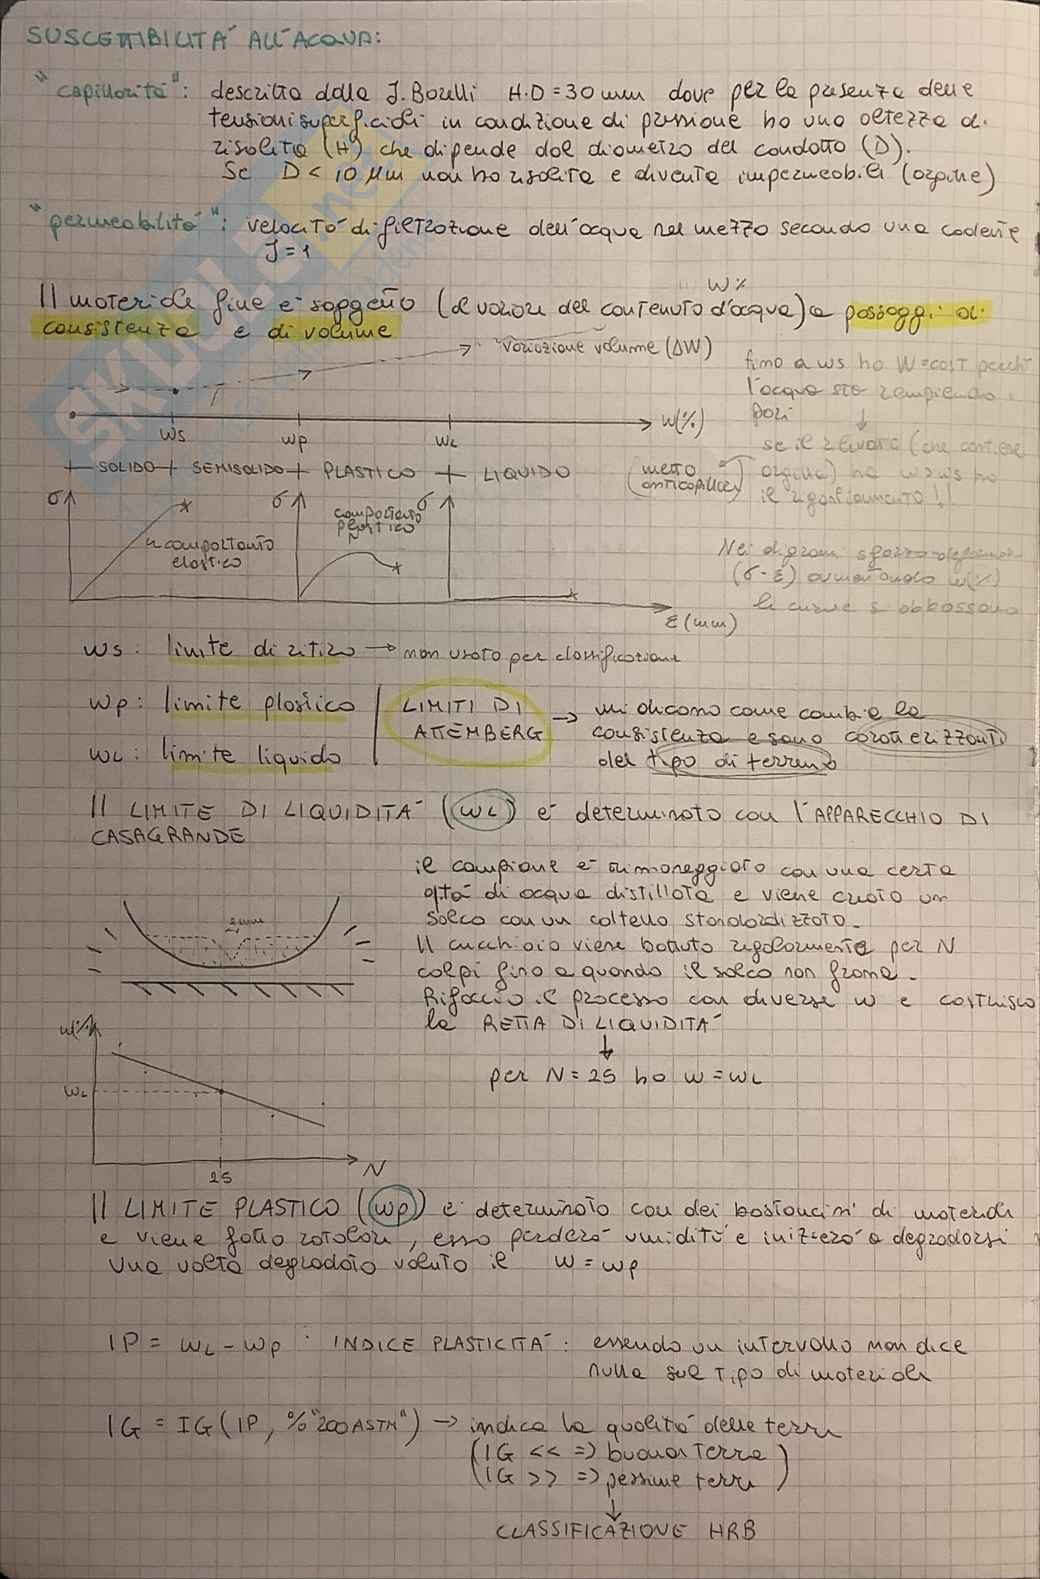 SUSCETTIBILITA' ALL'ACQUA:
"capillarità": descritta dalla J. Borelli H·D = 30 mm dove per la presenza delle
tensioni superficiali in condizione di pressione ho una altezza di
risalita (H) che dipende dal diametro del condotto (D).
Se D < 10 μm non ho risalita e diventa impermeabile (argine)
"permeabilità": velocità di filtrazione dell'acqua nel mezzo secondo una cadente
J = 1
W%
Il materiale fine è soggetto (al variare del contenuto d'acqua) a passaggi di
consistenza e di volume
variazione volume (ΔW)
fino a ws ho W = cost perché
l'acqua sta riempiendo i
pori
ws wp wL w(%)
SOLIDO SEMISOLIDO PLASTICO LIQUIDO
(metto anticapillare)
se il rilevato (che contiene
argilla) ha w>ws ho
il rigonfiamento!!
σ σ σ
comportamento
elastico
comportamento
plastico
Nei digrami sforzo-deformaz
(σ-ε) aumentando w(%)
le curve si abbassano
ε (mm)
ws: limite di ritiro → non usato per classificazione
wp: limite plastico
wL: limite liquido
LIMITI DI
ATTEMBERG → mi dicono come cambia la
consistenza e sono caratterizzanti
del tipo di terreno
Il LIMITE DI LIQUIDITA' (wL) è determinato con l'APPARECCHIO DI
CASAGRANDE
il campione è rimaneggiato con una certa
qtà di acqua distillata e viene creato un
solco con un coltello standardizzato.
Il cucchiaio viene battuto regolarmente per N
colpi fino a quando il solco non frana.
Rifaccio il processo con diverse w e costruisco
la RETTA DI LIQUIDITA'
↓
per N = 25 ho w = wL
2mm
w(%)
wL
25 N
Il LIMITE PLASTICO (wp) è determinato con dei bastoncini di materiale
e viene fatto rotolare, esso perderà umidità e inizierà a degradarsi
una volta degradato valuto il w = wp
IP = wL - wp : INDICE PLASTICITA': essendo un intervallo non dice
nulla sul tipo di materiale
IG = IG (IP, % "200 ASTM") → indica la qualità delle terre
(IG << => buona terra
IG >> => pessime terre)
↓
CLASSIFICAZIONE HRB